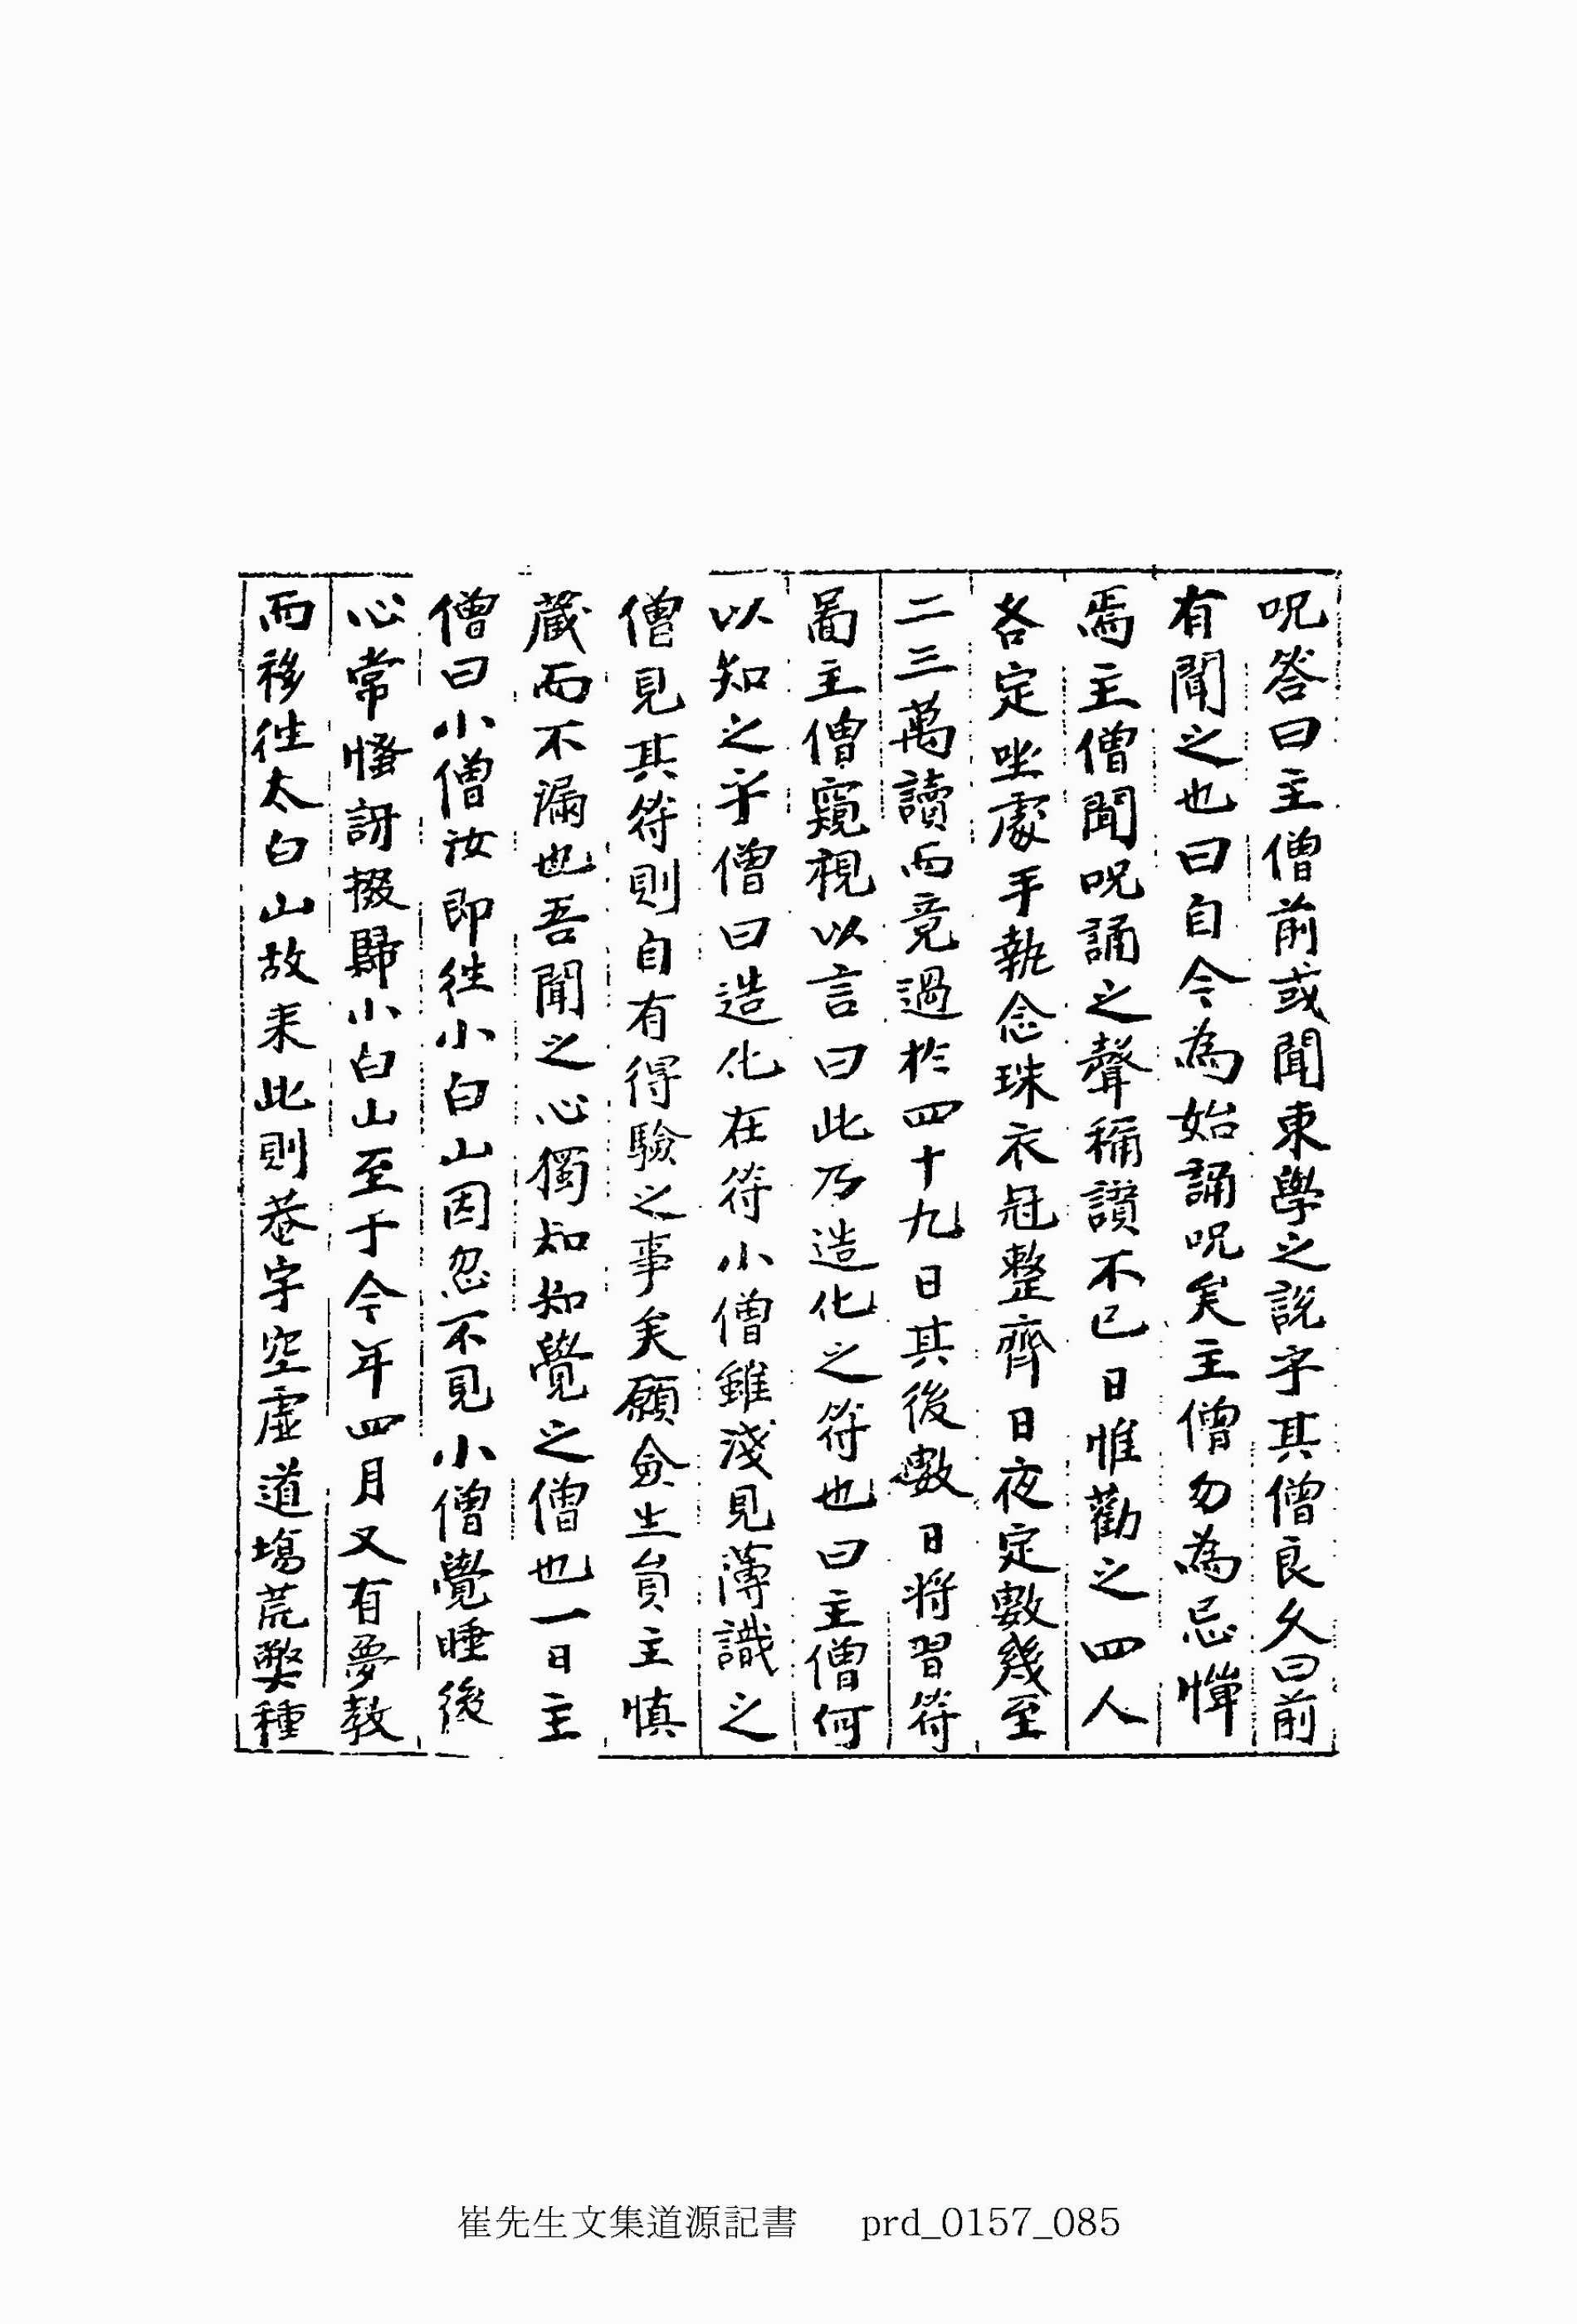 呪答曰主僧前或聞東學之說乎其僧良久曰前
有聞之也曰自今為始誦呪矣主僧勿為忌憚
焉主僧聞呪誦之聲稱讚不已日惟勸之四人
各定坐處手執念珠衣冠整齊日夜定數幾至
二三萬讀而竟過於四十九日其後數日將習符
啚主僧窺視以言曰此乃造化之符也曰主僧何
以知之乎僧曰造化在符小僧雖淺見薄識之
僧見其符則自有得驗之事矣願僉生員主慎
藏而不漏也吾聞之心獨知知覺之僧也一日主
僧曰小僧汝即徃小白山因忽不見小僧覺睡後
心常慅訝掇歸小白山至于今年四月又有夢教
而移徃太白山故来此則菴宇空虛道塲荒弊種
崔先生文集道源記書 prd_0157_085